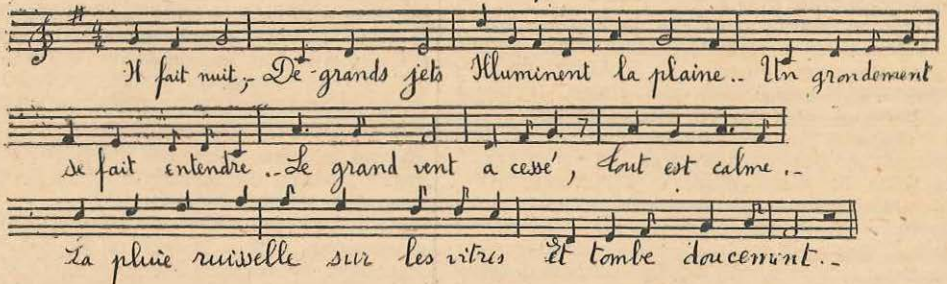 Il fait nuit,- De grands jets Illuminent la plaine.. Un grondement
se fait entendre.. Le grand vent a cessé, tout est calme..
La pluie ruisselle sur les vitres Et tombe doucement..